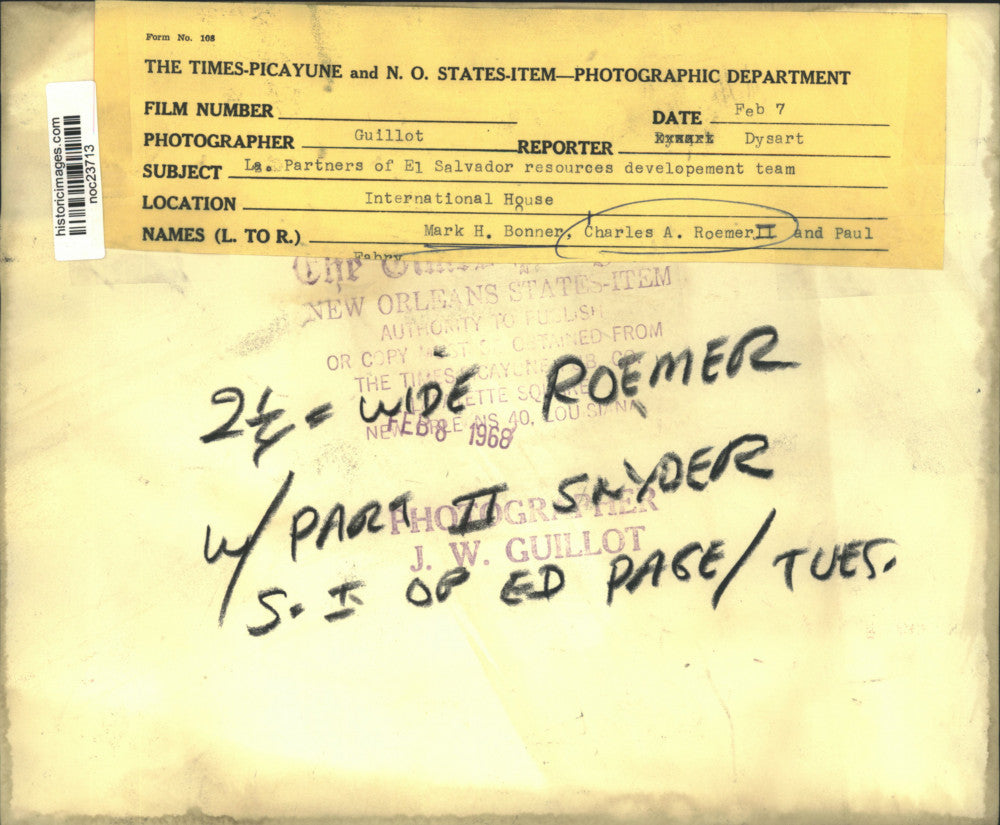 Form No. 108
THE TIMES-PICAYUNE and N. O. STATES-ITEM—PHOTOGRAPHIC DEPARTMENT
FILM NUMBER
DATE Feb 7
PHOTOGRAPHER Guillot REPORTER Dysart
SUBJECT La. Partners of El Salvador resources developement team
LOCATION International House
NAMES (L. TO R.) Mark H. Bonner, Charles A. Roemer II and Paul
Fabry
historicimages.com
noc23713
The
NEW ORLEANS STATES-ITEM
AUTHORITY TO PUBLISH
OR COPY MUST BE OBTAINED FROM
THE TIMES-PICAYUNE PUB. CO.
LAFAYETTE SQUARE
NEW ORLEANS 40, LOUISIANA
FEB 8 1968
2¼ = WIDE ROEMER
W/ PART II SNYDER
S-I OP ED PAGE/TUES.
PHOTOGRAPHER
J. W. GUILLOT